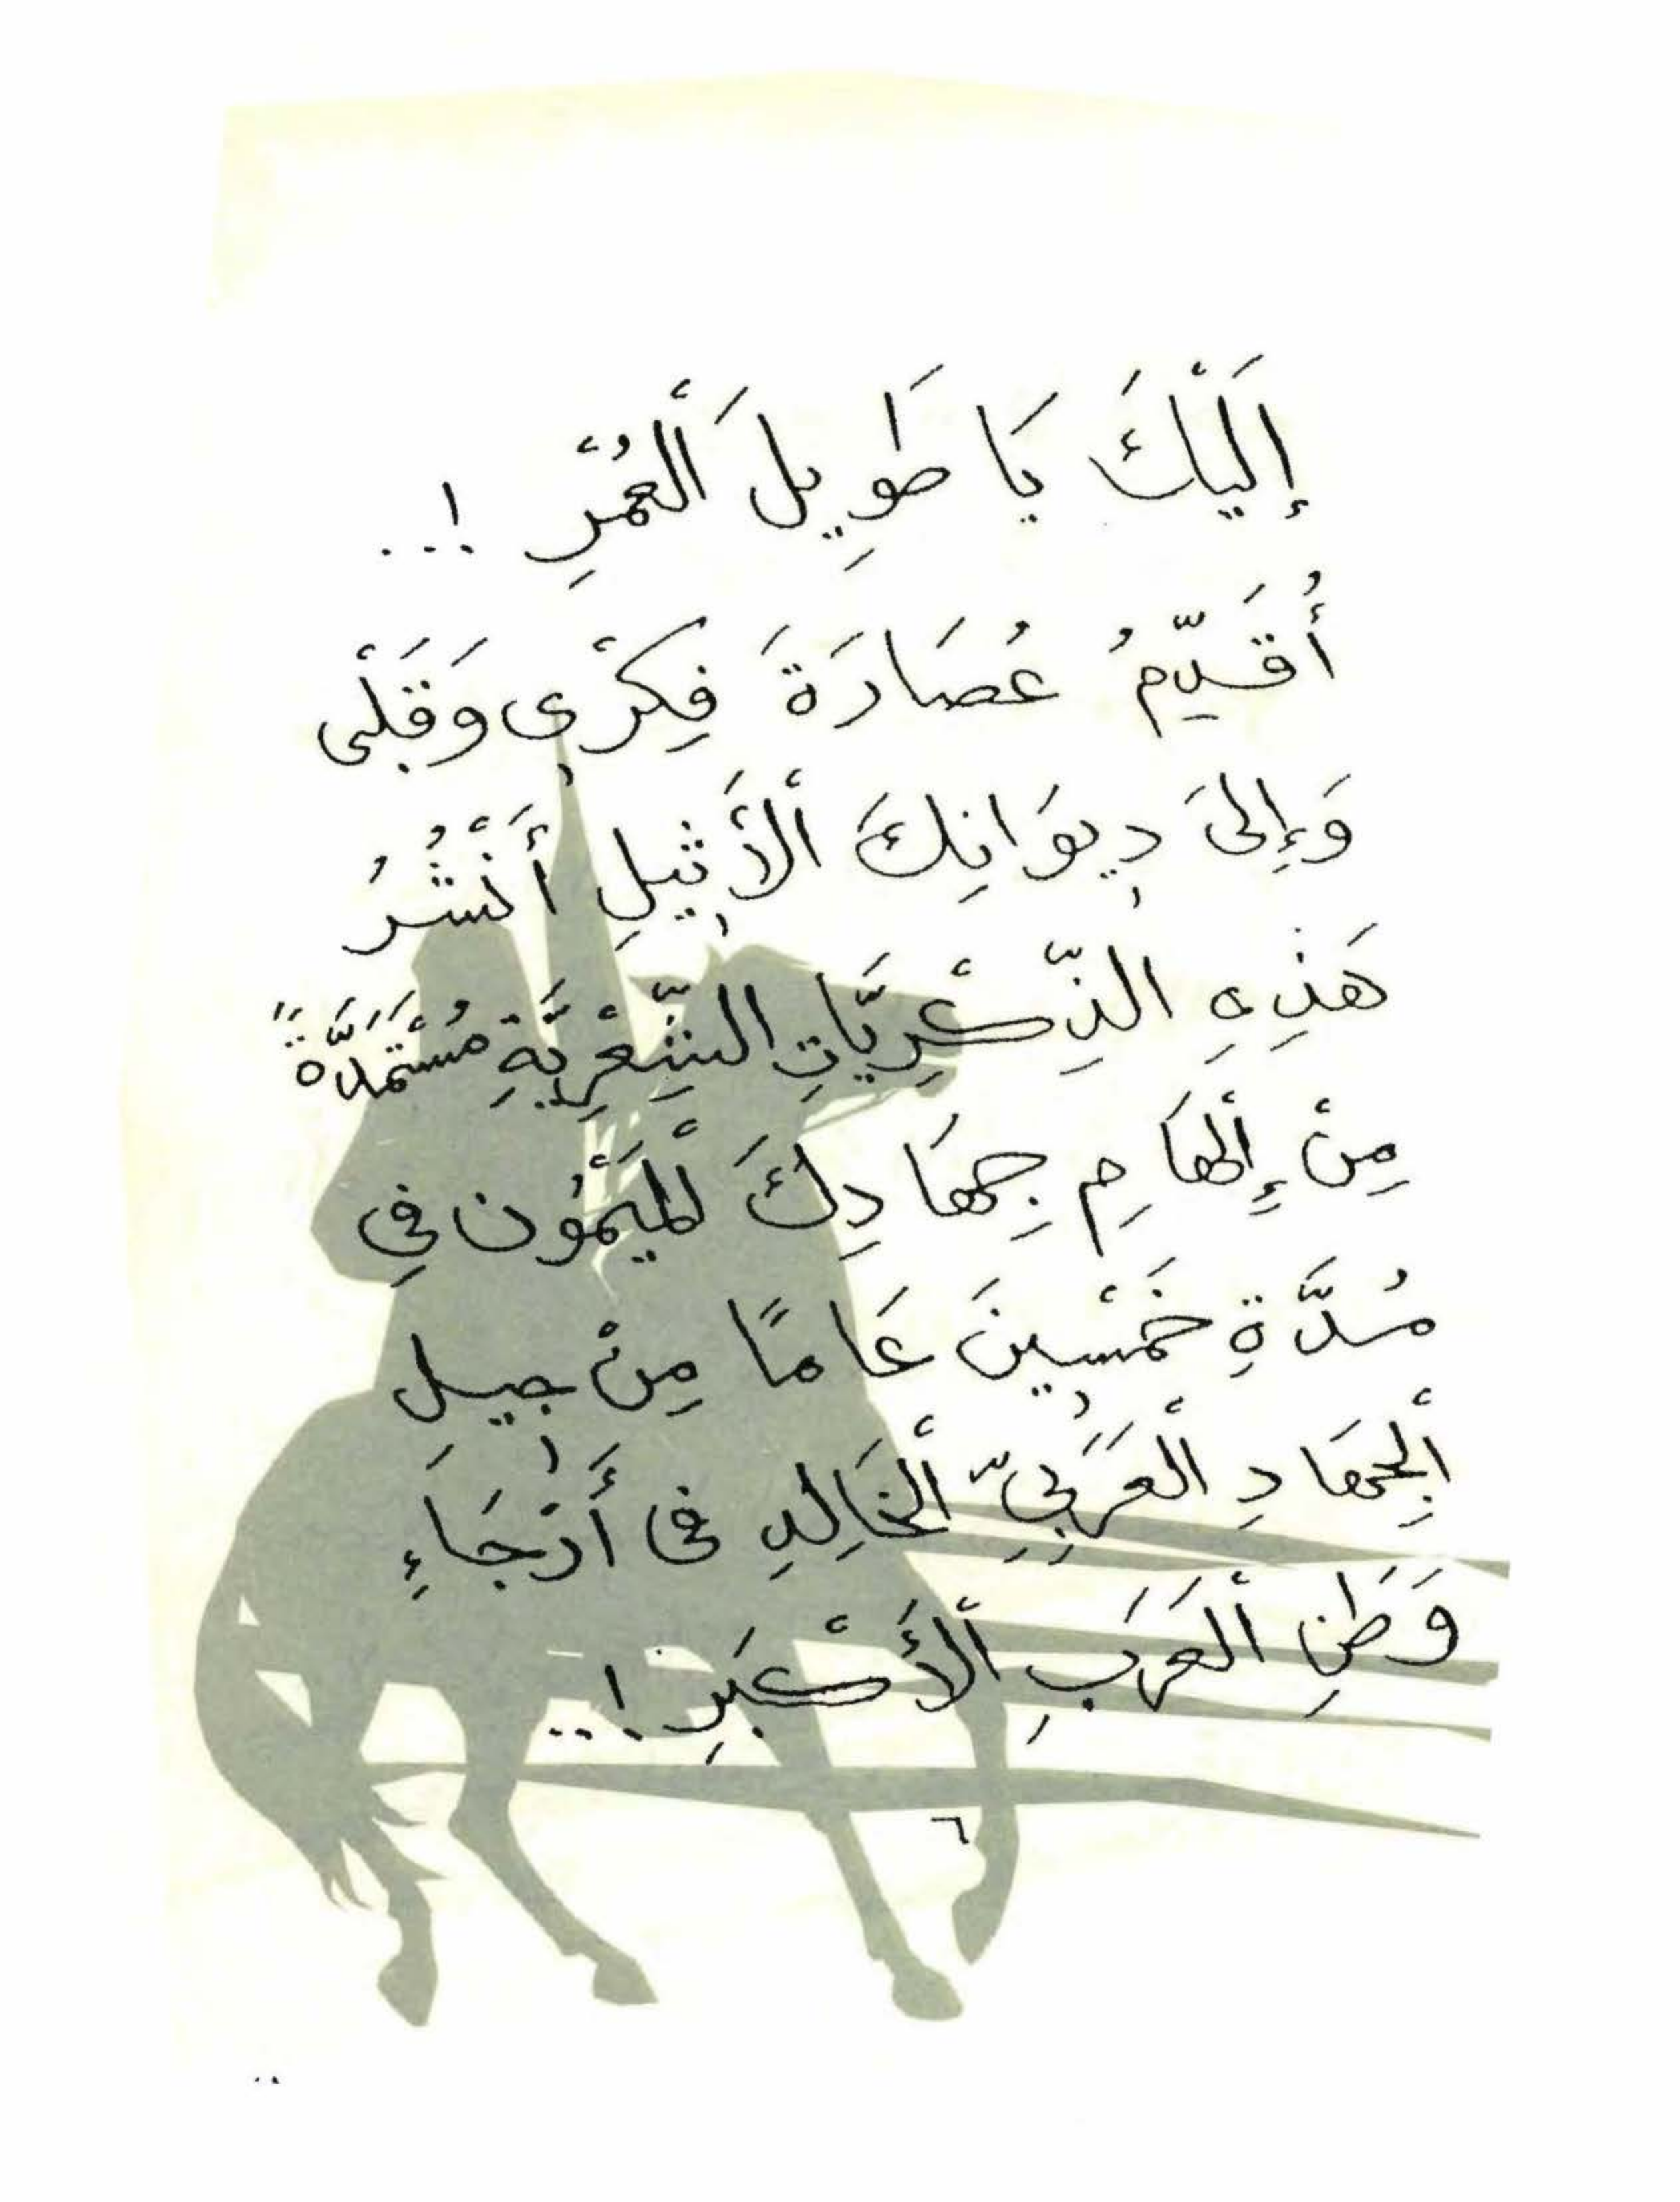 إِلَيْكَ يَا طَوِيلَ ٱلْعُمْرِ !...
أُقَدِّمُ عُصَارَةَ فِكْرِى وَقَلْبِى
وَإِلَىٰ دِيوَانِكَ ٱلْأَثِيلِ أَنْشُرُ
هَذِهِ الذِّكْرِيَّاتِ الشِّعْرِيَّةِ مُسْتَمَدَّةً
مِنْ إِلْهَامِ جِهَادِكَ لْمَيْمُون فِي
مُدَّةِ خَمْسِينَ عَامًا مِنْ جِيل
ٱلْجِهَادِ الْعَرَبِيِّ ٱلْخَالِدِ فى أَرْجَاءِ
وَطَنِ ٱلْعَرَبِ ٱلْأَكْبَرِ !...
٦